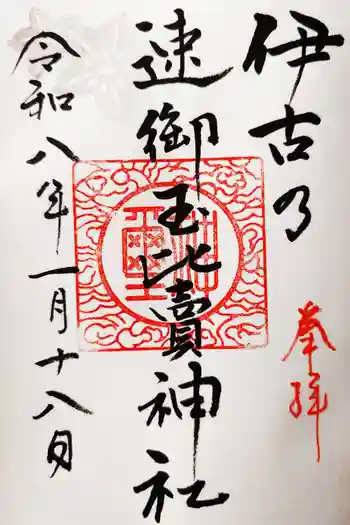 奉拝
伊古乃
速御玉比賣神社
令和八年一月十八日